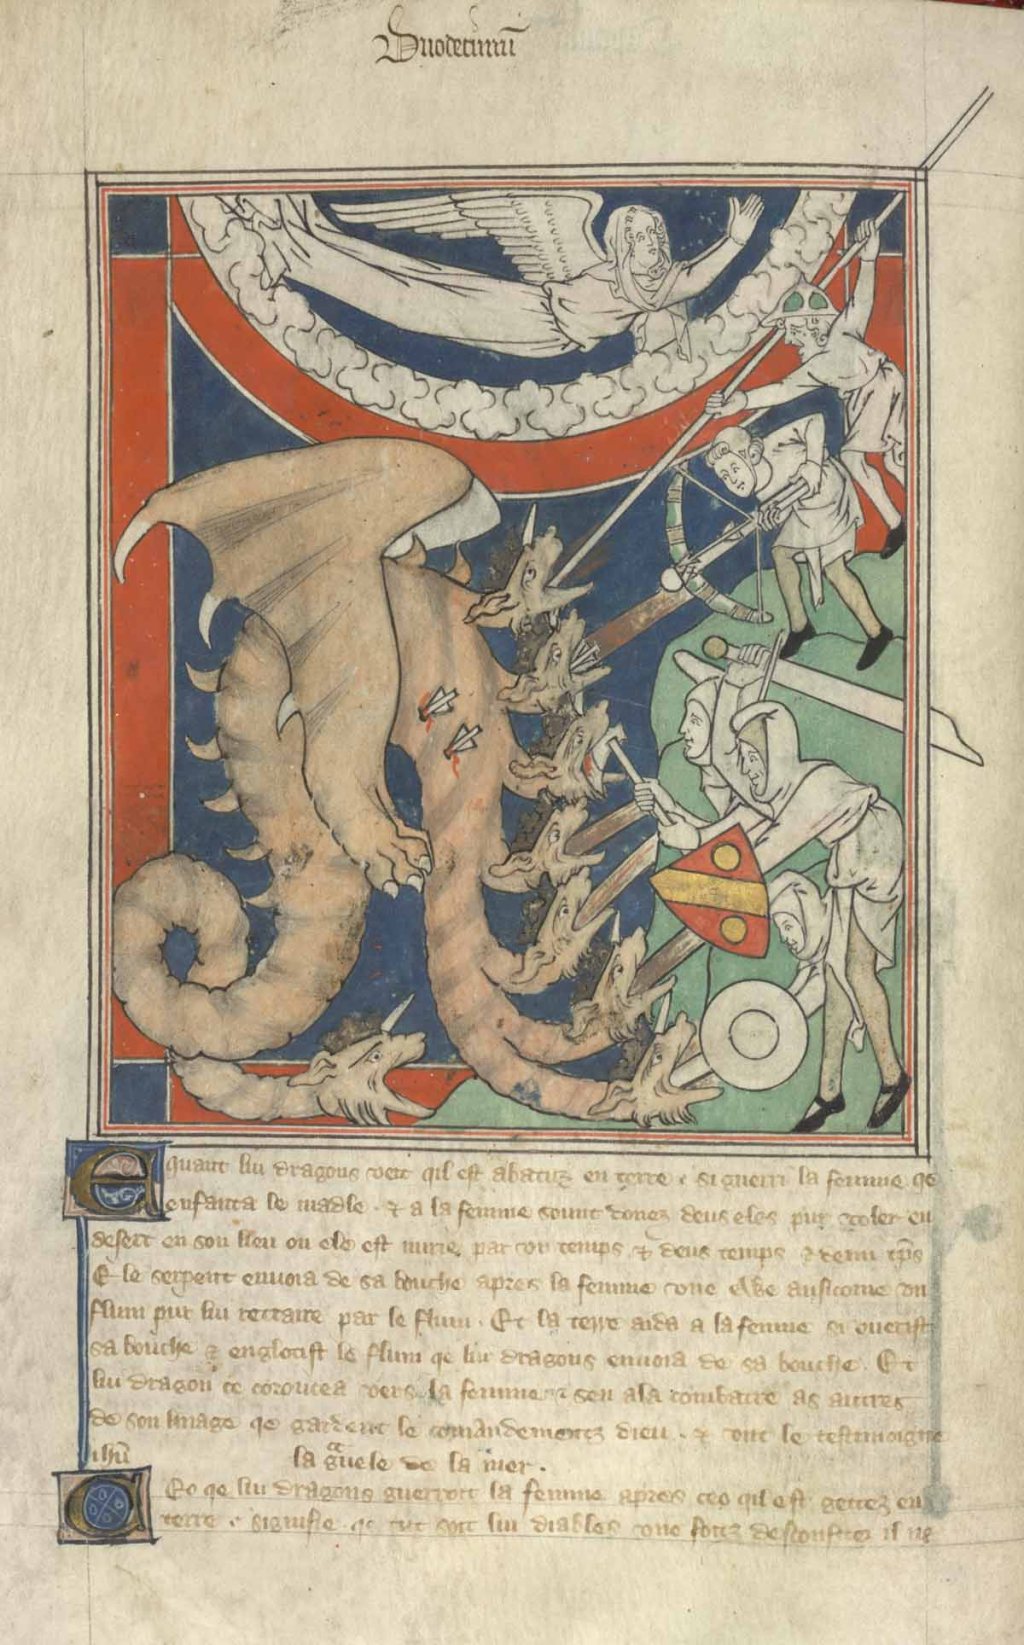 Duodecimū
E quant liu dragons veit qil est abatuz en terre ⁊ si guerri la femme qe
enfanta le madle . ⁊ a la femme sount donez deus eles pur voler en
desert en son lieu ou ele est nurie par vn temps ⁊ deus temps ⁊ demi tp̄s
E le serpent enuoia de sa bouche apres la femme vne ewe ausicome vn
flum pur lui tretraire par le flum . Et la terre aida a la femme si ouerist
sa bouche ⁊ englotist le flum qe liu dragons enuoia de sa bouche . Et
liu dragon ce coroucea vers la femme ⁊ sen ala combatre as autres
de son linage qe gardent le comandementz dieu . ⁊ ont le testmoigne
ihū la guele de la mer .
Ceo qe liu dragons guerroit la femme apres ceo qil est gettez en
terre . signifie qe tut soit liu diables vne foiz desconfitz il ne